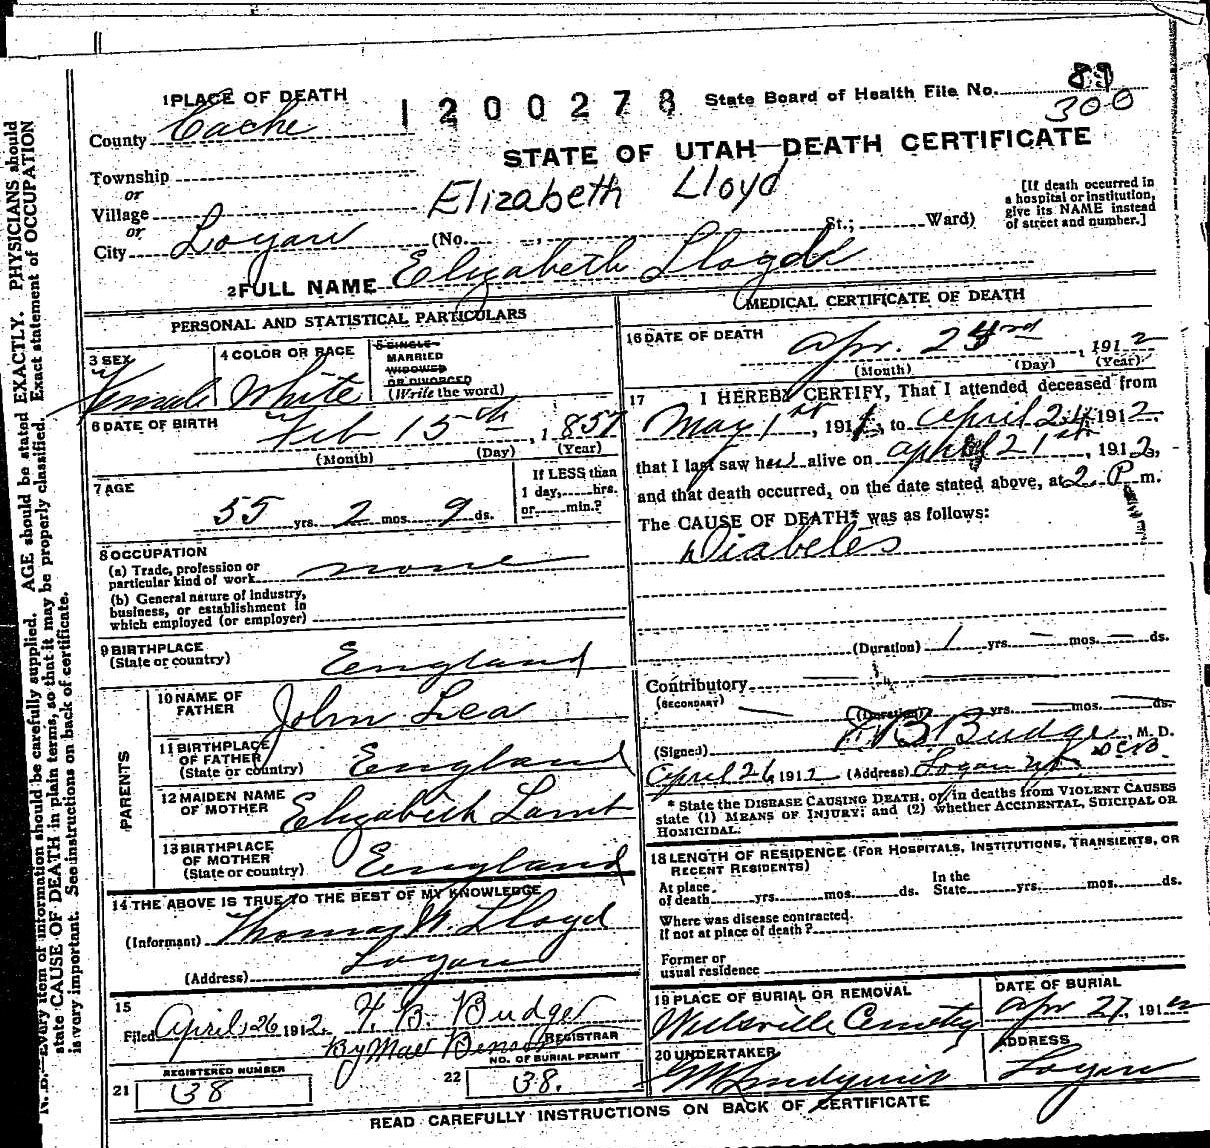 1 PLACE OF DEATH
1200278
State Board of Health File No. 89
300
County Cache
STATE OF UTAH—DEATH CERTIFICATE
Township
or
Village
or
City Logan
Elizabeth Lloyd
(No. , St.; Ward)
[If death occurred in
a hospital or institution,
give its NAME instead
of street and number.]
2 FULL NAME Elizabeth Lloyd
PERSONAL AND STATISTICAL PARTICULARS
3 SEX
Female
4 COLOR OR RACE
White
5 SINGLE
MARRIED
WIDOWED
OR DIVORCED
(Write the word)
6 DATE OF BIRTH
Feb 15th, 1857
(Month) (Day) (Year)
7 AGE
55 yrs. 2 mos. 9 ds.
If LESS than
1 day, hrs.
or min.?
8 OCCUPATION
(a) Trade, profession or
particular kind of work none
(b) General nature of industry,
business, or establishment in
which employed (or employer)
9 BIRTHPLACE
(State or country) England
PARENTS
10 NAME OF
FATHER John Lea
11 BIRTHPLACE
OF FATHER
(State or country) England
12 MAIDEN NAME
OF MOTHER Elizabeth
13 BIRTHPLACE
OF MOTHER
(State or country) England
14 THE ABOVE IS TRUE TO THE BEST OF MY KNOWLEDGE
(Informant) Thomas W. Lloyd
(Address) Logan
15
Filed April, 26 1912. F. B. Budge
By Mae Benson REGISTRAR
REGISTERED NUMBER
21 38
NO. OF BURIAL PERMIT
22 38.
MEDICAL CERTIFICATE OF DEATH
16 DATE OF DEATH
Apr. rd, 1912
(Month) (Day) (Year)
17 I HEREBY CERTIFY, That I attended deceased from
May 1st, 1911, to April 24, 1912,
that I last saw her alive on April 21st, 1912,
and that death occurred, on the date stated above, at 2 P m.
The CAUSE OF DEATH* was as follows:
Diabetes
(Duration) 1 yrs. — mos. — ds.
Contributory
(SECONDARY)
(Duration) yrs. mos. ds.
(Signed) F. B. Budge, M. D.
April 26, 1912 (Address) Logan
* State the DISEASE CAUSING DEATH, or, in deaths from VIOLENT CAUSES
state (1) MEANS OF INJURY; and (2) whether ACCIDENTAL, SUICIDAL OR
HOMICIDAL.
18 LENGTH OF RESIDENCE (FOR HOSPITALS, INSTITUTIONS, TRANSIENTS, OR
RECENT RESIDENTS)
At place
of death yrs. mos. ds.
In the
State yrs. mos. ds.
Where was disease contracted
if not at place of death?
Former or
usual residence
19 PLACE OF BURIAL OR REMOVAL
Wellsville Cemetery
DATE OF BURIAL
Apr 27, 1912
20 UNDERTAKER
ADDRESS
Logan
READ CAREFULLY INSTRUCTIONS ON BACK OF CERTIFICATE
N. B.—Every item of information should be carefully supplied. AGE should be stated EXACTLY. PHYSICIANS should
state CAUSE OF DEATH in plain terms, so that it may be properly classified. Exact statement of OCCUPATION
is very important. See instructions on back of certificate.